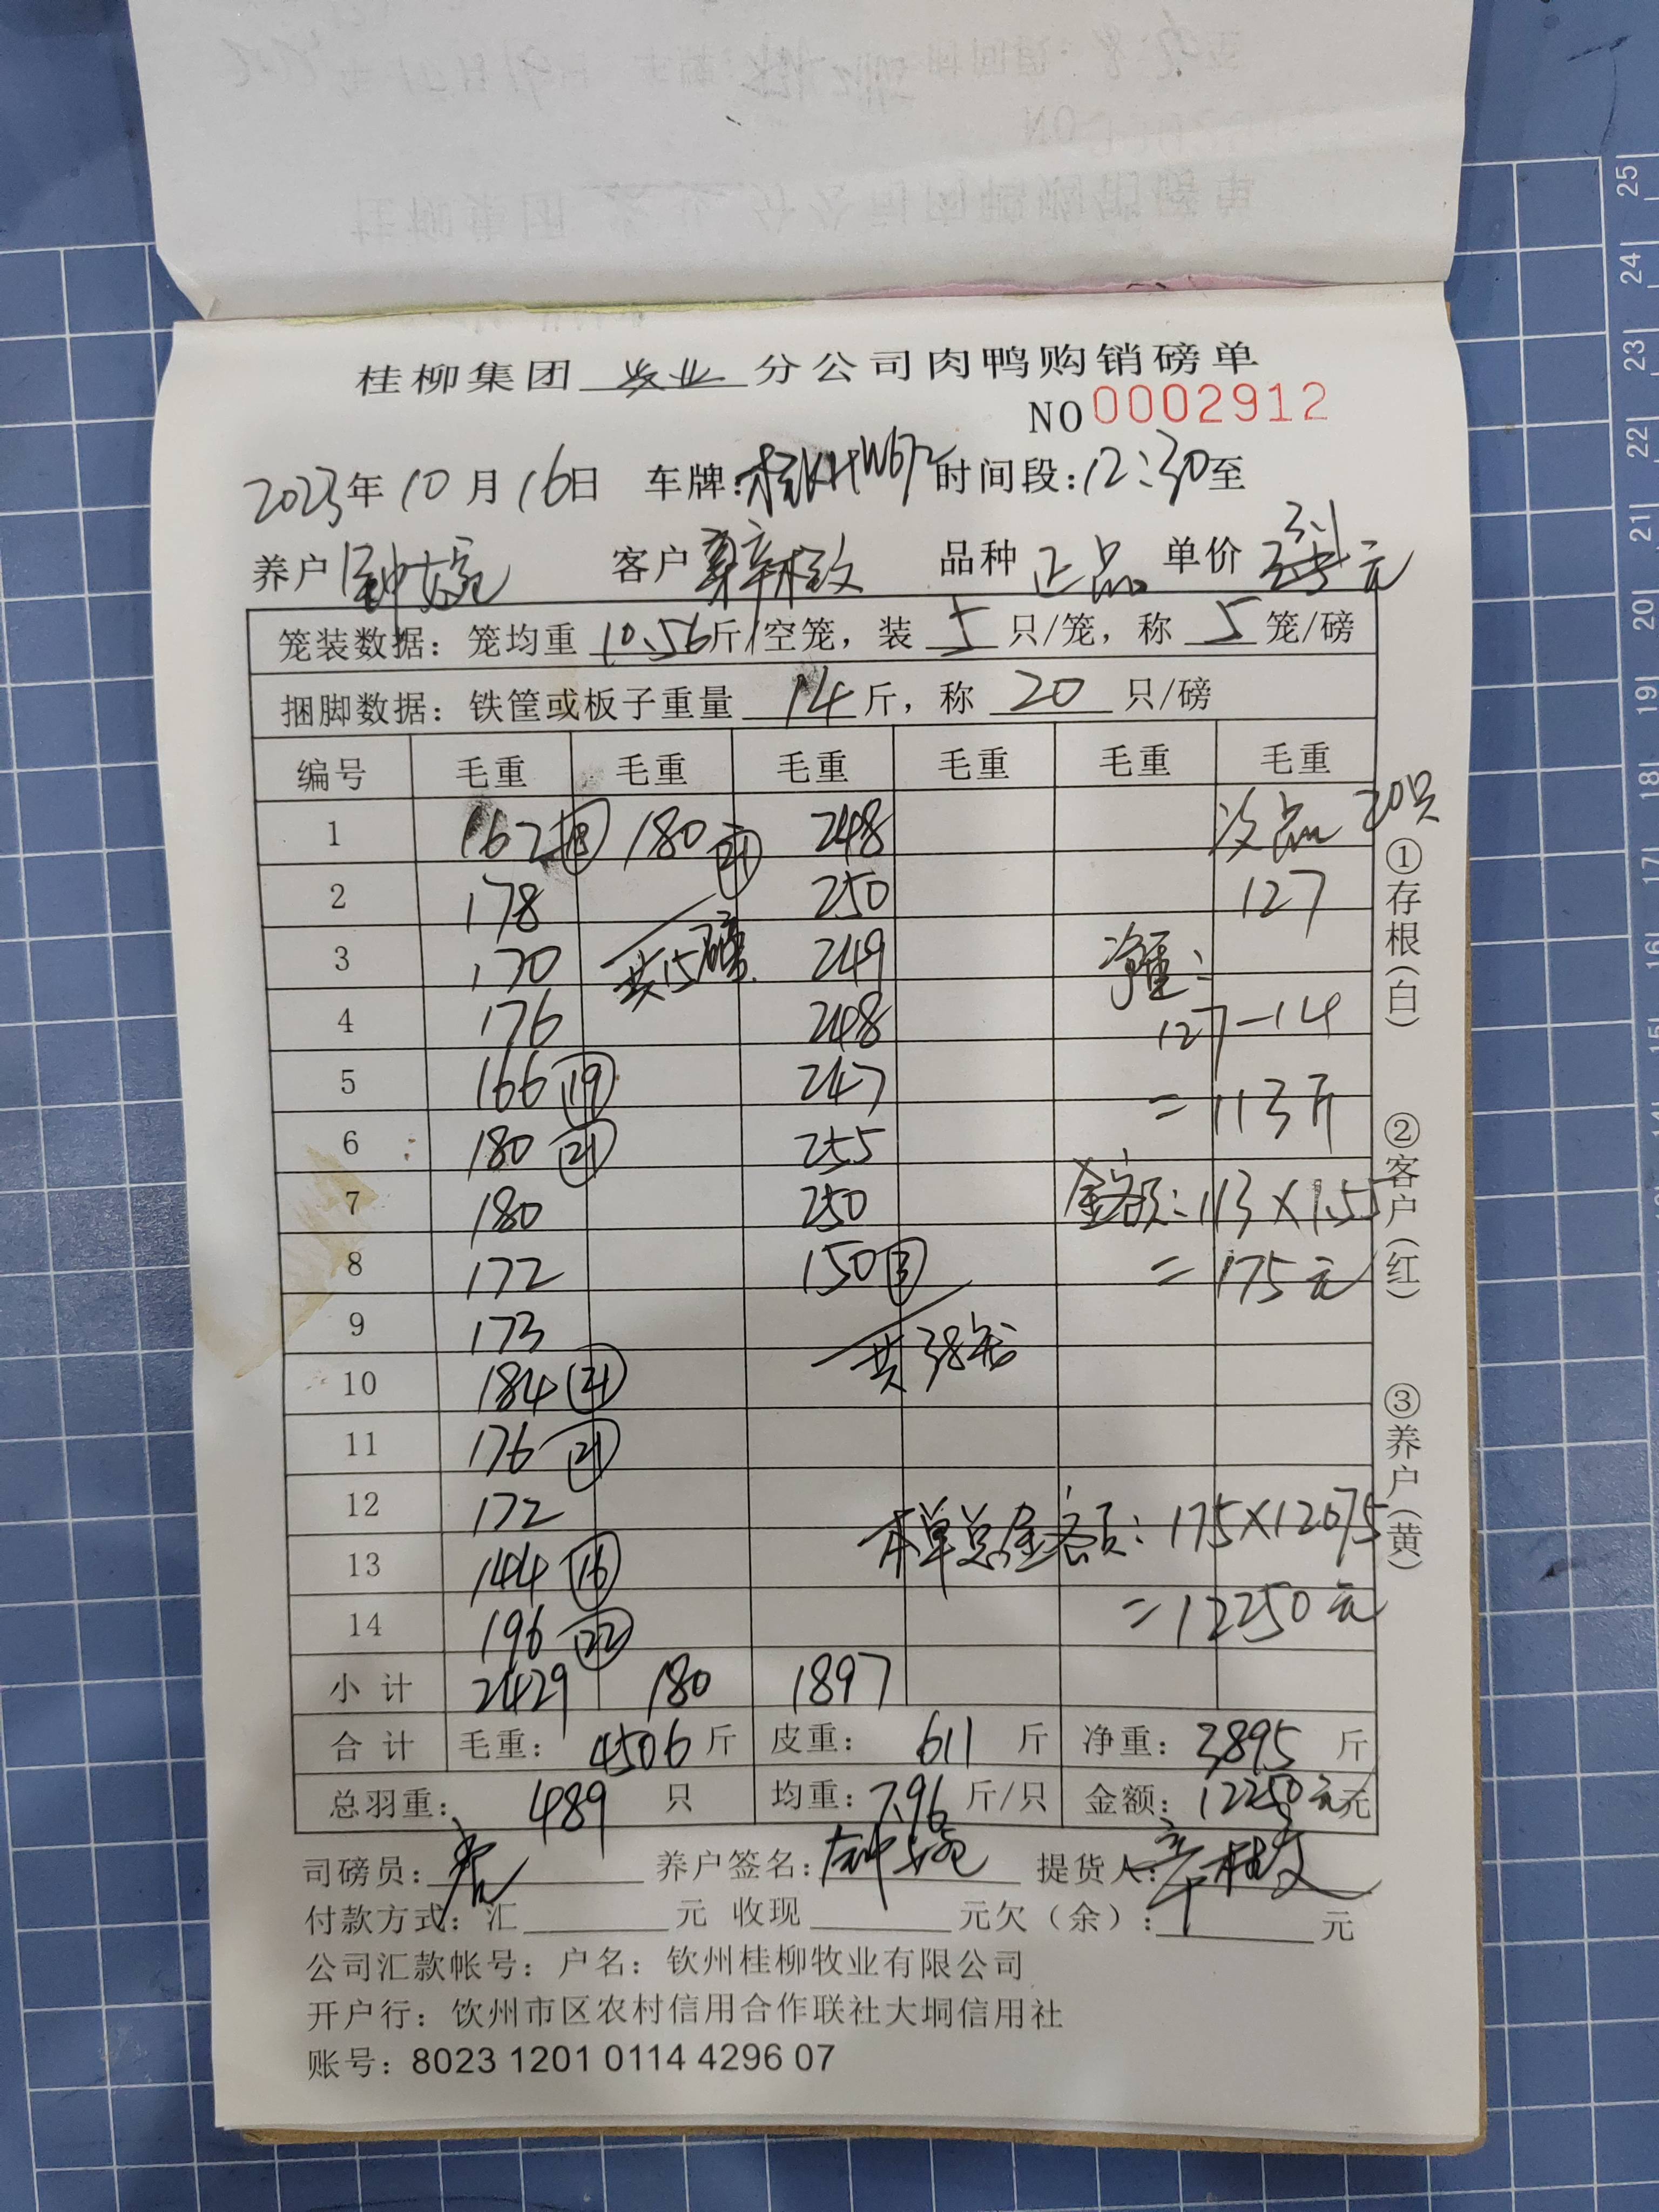 桂柳集团 牧业 分公司肉鸭购销磅单
NO 0002912
2023年10月16日 车牌:桂KHW672 时间段:12:30至
养户 客户 品种 正品 单价 3.1 元
笼装数据:笼均重 10.56斤/空笼,装 5 只/笼,称 5 笼/磅
捆脚数据:铁筐或板子重量 14斤,称 20 只/磅
编号 毛重 毛重 毛重 毛重 毛重 毛重
1 162 18 180 21 248 次品 20只
2 178 250 127
3 170 共15磅 249 净重:
4 176 248 127-14
5 166 19 247 =113斤
6 180 21 255
7 180 250 金额:113×1.55
8 172 150 3 =175元
9 173 共38笼
10 184 21
11 176 21
12 172 本单总金额:175×12075
13 144 16
14 196 22 =12250元
小计 2429 180 1897
合计 毛重:4506斤 皮重:611斤 净重:3895斤
总羽重:489只 均重:7.96斤/只 金额:12250元元
司磅员: 养户签名: 提货人:
付款方式:汇 元 收现 元欠(余): 元
公司汇款帐号:户名:钦州桂柳牧业有限公司
开户行:钦州市区农村信用合作联社大垌信用社
账号:8023 1201 0114 4296 07
①存根(白) ②客户(红) ③养户(黄)
25
24
23
22
21
20
19
18
17
16
15
14